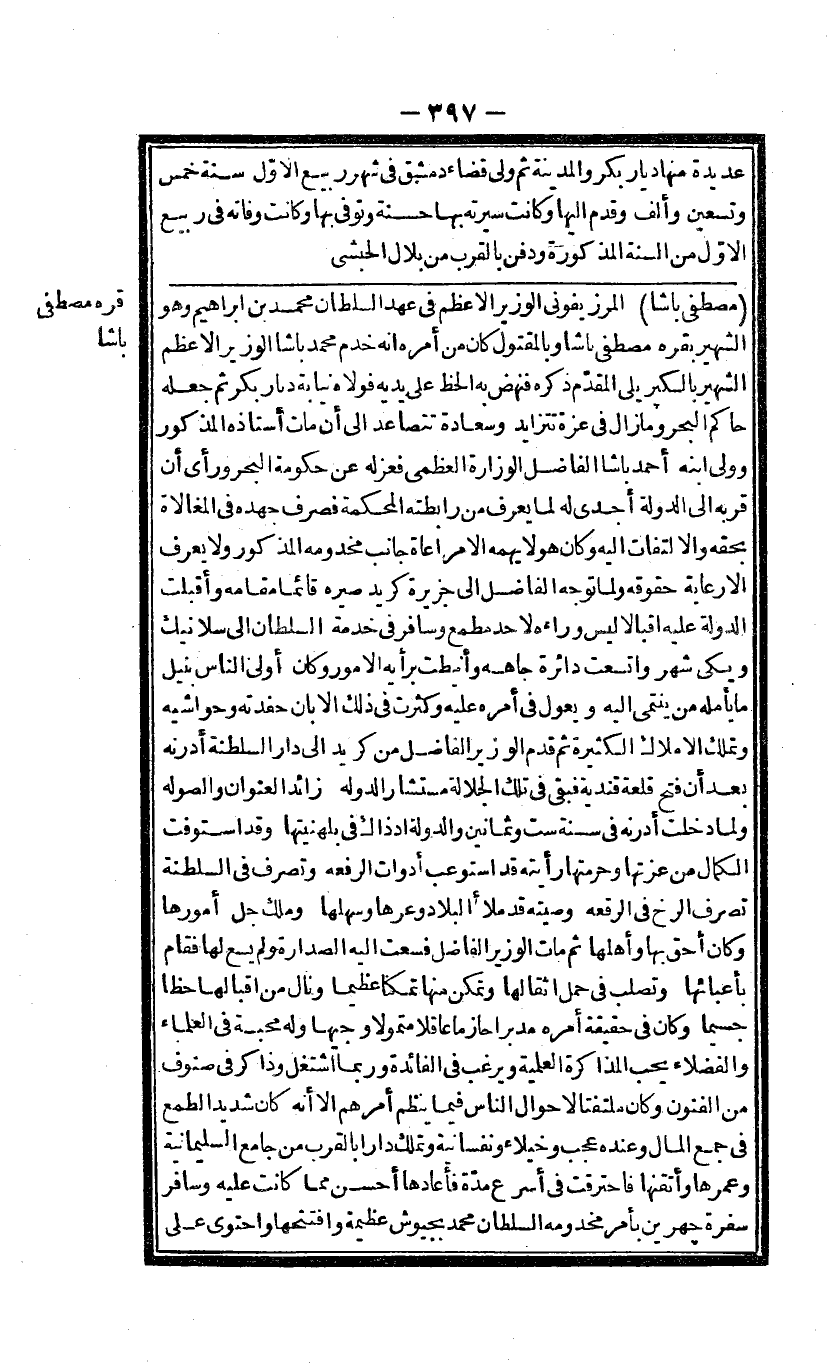 — ٣٩٧ —
عديدة منها ديار بكر والمدينة ثم ولى قضاء دمشق فى شهر ربيع الاوّل سنة خمس
وتسعين وألف وقدم اليها وكانت سيرته بها حسنة وتوفى بها وكانت وفاته فى ربيع
الاوّل من السنة المذكورة ودفن بالقرب من بلال الحبشى
(مصطفى باشا) المرزيفونى الوزير الاعظم فى عهد السلطان محمد بن ابراهيم وهو
قره مصطفى
باشا
الشهير بقره مصطفى باشا وبالمقتول كان من أمره انه خدم محمد باشا الوزير الاعظم
الشهير بالكبريلى المقدّم ذكره فنهض به الحظ على يديه فولاه نيابة ديار بكر ثم جعله
حاكم البحر ومازال فى عزة تتزايد وسعادة تتصاعد الى أن مات أستاذه المذكور
وولى ابنه أحمد باشا الفاضل الوزارة العظمى فعزله عن حكومة البحر ورأى أن
قربه الى الدولة أجدى له لما يعرف من رابطته المحكمة فصرف جهده فى المغالاة
بحقه والالتفات اليه وكان هو لايهمه الامراعاة جانب مخدومه المذكور ولا يعرف
الارعاية حقوقه ولما توجه الفاضل الى جزيرة كريد صيره قائما مقامه وأقبلت
الدولة عليه اقبالا ليس وراءه لاحد مطمع وسافر فى خدمة السلطان الى سلانيك
ويكى شهر واتسعت دائرة جاهه وأنيطت برأيه الامور وكان أولى الناس بنيل
مايأمله من ينتمى اليه ويعول فى أمره عليه وكثرت فى ذلك الابان حفدته وحواشيه
وتملك الاملاك الكثيرة ثم قدم الوزير الفاضل من كريد الى دار السلطنة أدرنه
بعد أن فتح قلعة قندية فبقى فى تلك الجلالة مستشار الدوله زائد العنوان والصوله
ولما دخلت أدرنه فى سنة ست وثمانين والدولة اذ ذاك فى بلهنيتها وقد استوفت
الكمال من عزتها وحرمتها رأيته قد استوعب أدوات الرفعه وتصرف فى السلطنة
تصرف الرخ فى الرقعه وصيته قد ملأ البلاد وعرها وسهلها وملك جل أمورها
وكان أحق بها وأهلها ثم مات الوزير الفاضل فسعت اليه الصدارة ولم يسع لها فقام
بأعبائها وتصلب فى حمل اثقالها وتمكن منها تمكنا عظيما ونال من اقبالها حظا
جسيما وكان فى حقيقة أمره مدبرا حازما عاقلا متمولا وجيها وله محبة فى العلماء
والفضلاء يحب المذاكرة العلمية ويرغب فى الفائدة وربما أشتغل وذاكر فى صنوف
من الفنون وكان ملتفتا لاحوال الناس فيما ينظم أمرهم الا أنه كان شديد الطمع
فى جمع المال وعنده عجب وخيلاء ونفسانية وتملك دارا بالقرب من جامع السليمانية
وعمرها وأتقنها فاحترقت فى أسرع مدّة فأعادها أحسن مما كانت عليه وسافر
سفرة چهرين بأمر مخدومه السلطان محمد بجيوش عظيمة وافتتحها واحتوى على